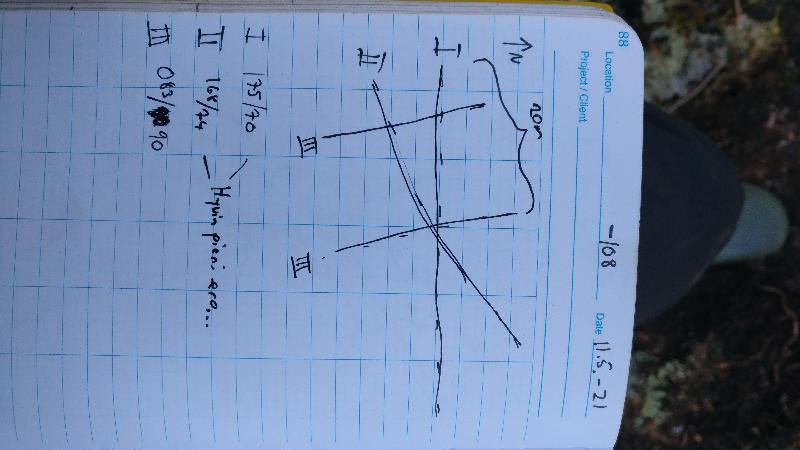 88
Location -108 Date 11.5.-21
Project / Client
↑N
20m
I
II
III
III
I 175/70
II 168/74
Hyvin pieni ero...
III 083/90